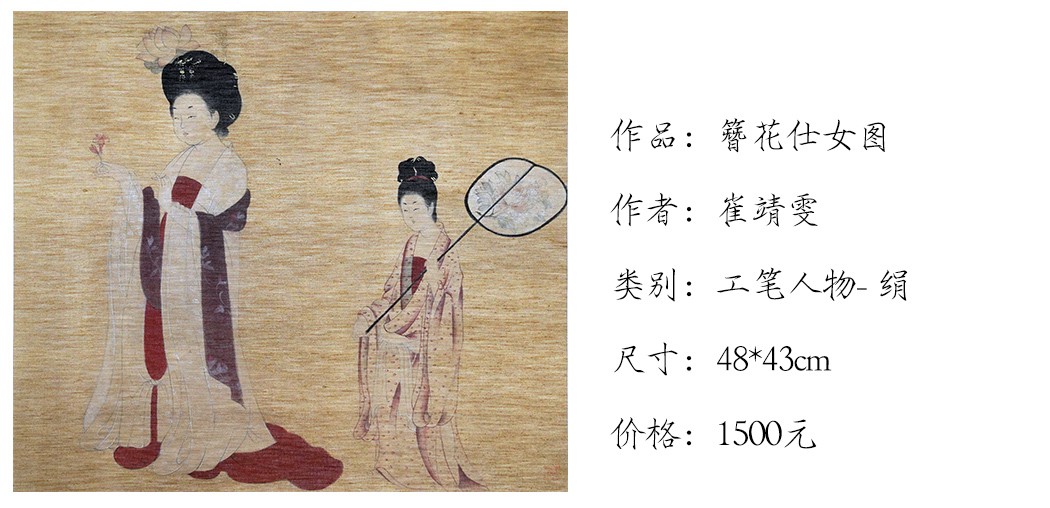 作品：簪花仕女图
作者：崔靖雯
类别：工笔人物- 绢
尺寸：48*43cm
价格：1500元